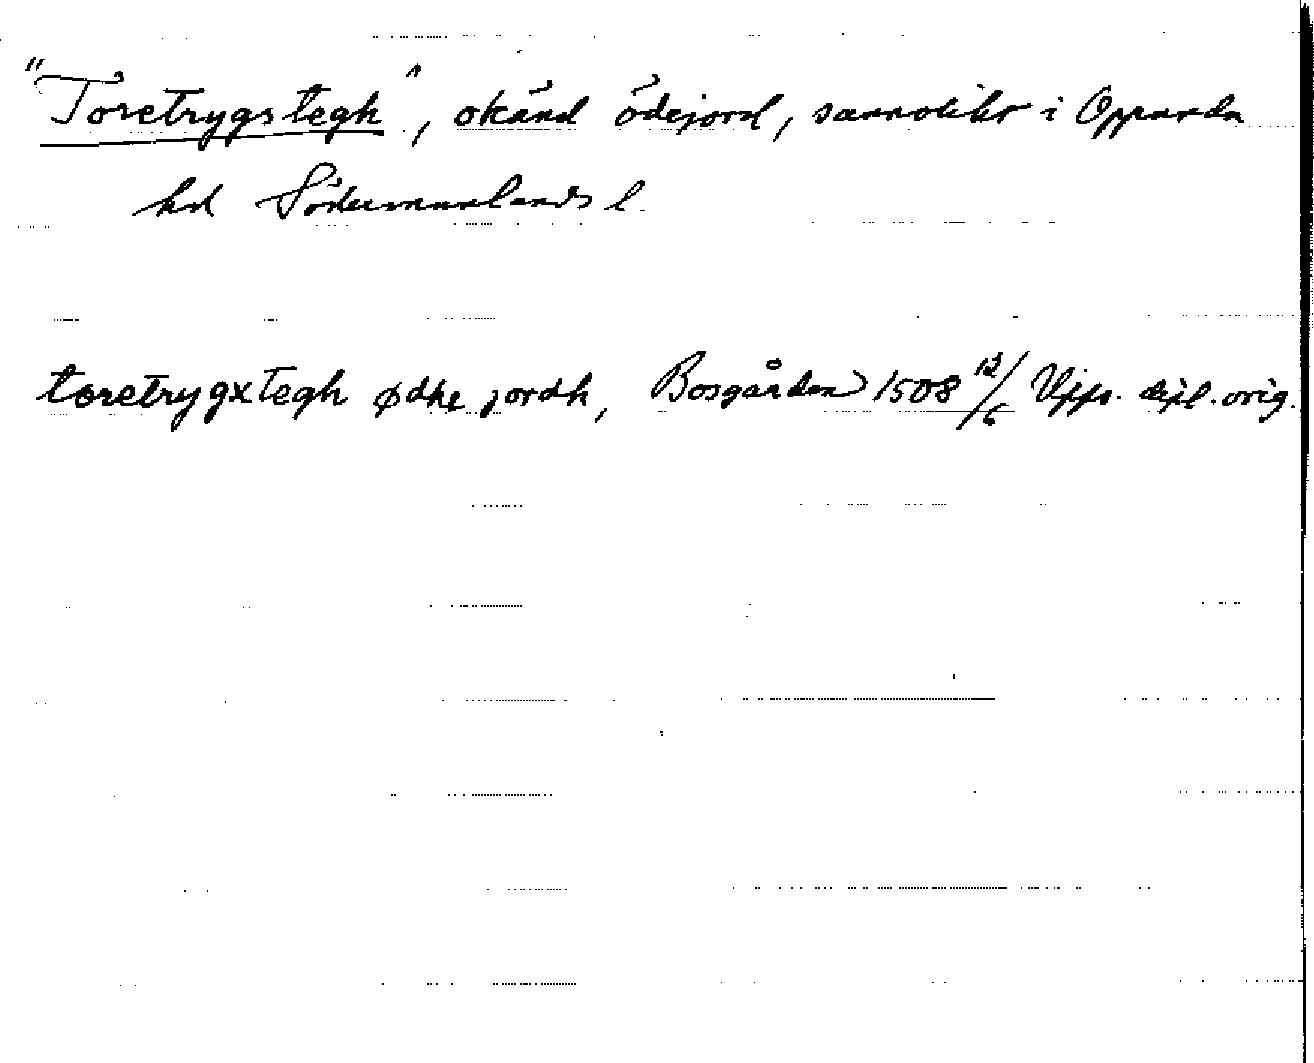 "Toretrygstegh", okänd ödejord, sannolikt i Oppunda
hd Södermanlands l.
toretrygxtegh ødhe jordh, Bosgården 1508 12/6 Upps. dipl. orig.